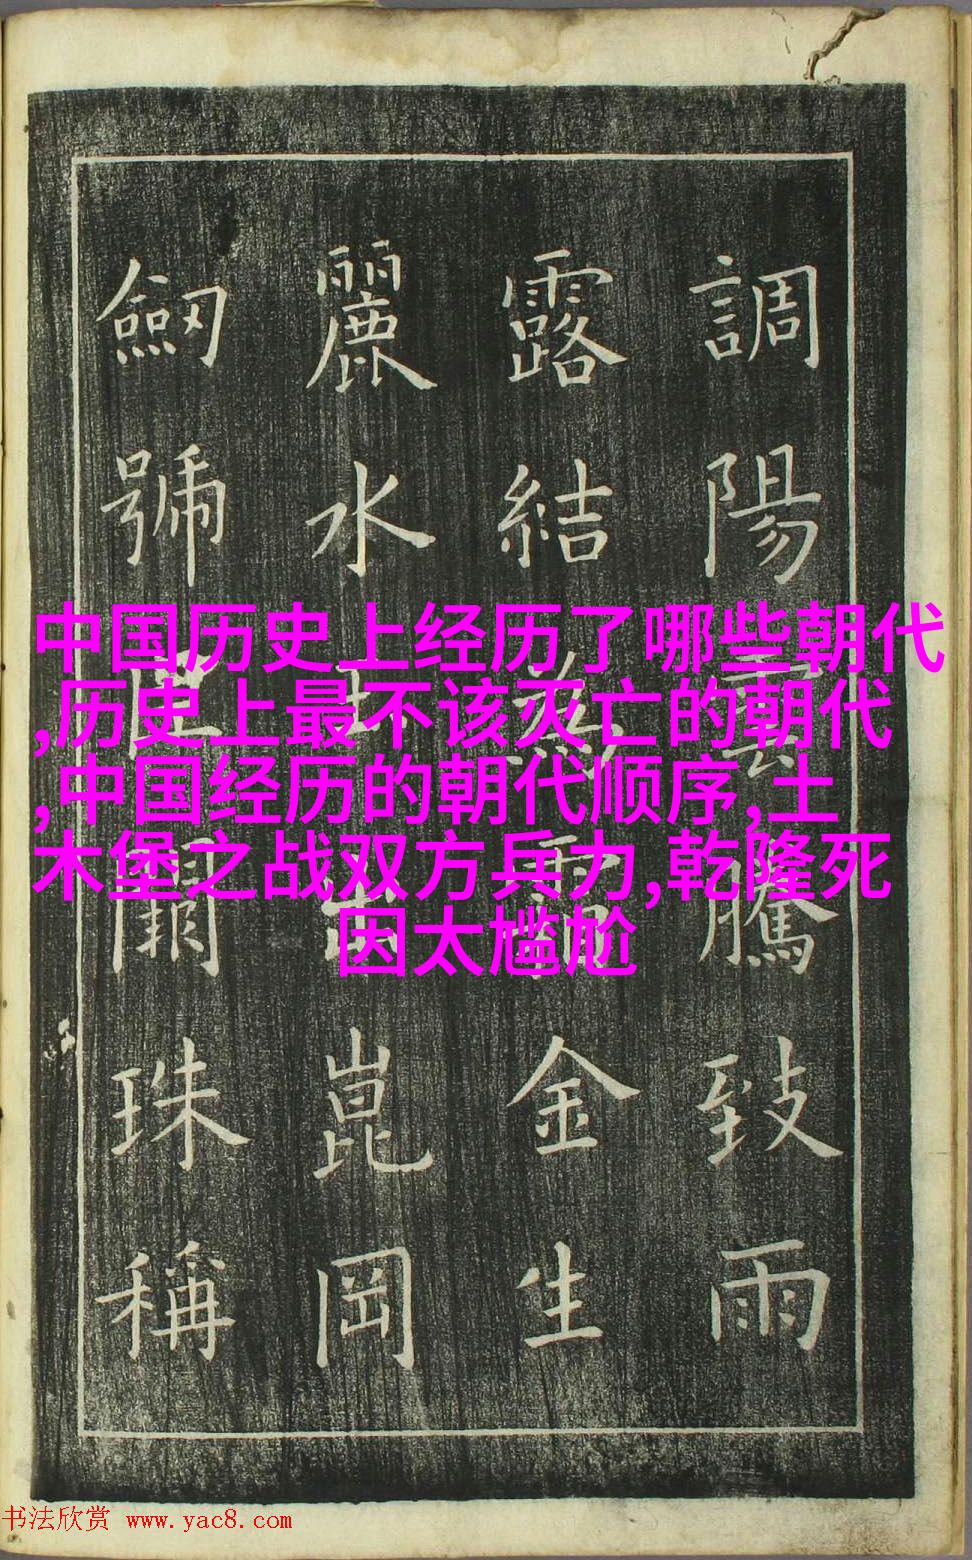 調陽雲騰致雨
露結為霜金生
麗水玉出崑岡
劒號巨闕珠稱
中国历史上经历了哪些朝代
,历史上最不该灭亡的朝代
,中国经历的朝代顺序,土
木堡之战双方兵力,乾隆死
因太尴尬
书法欣赏 www.yac8.com